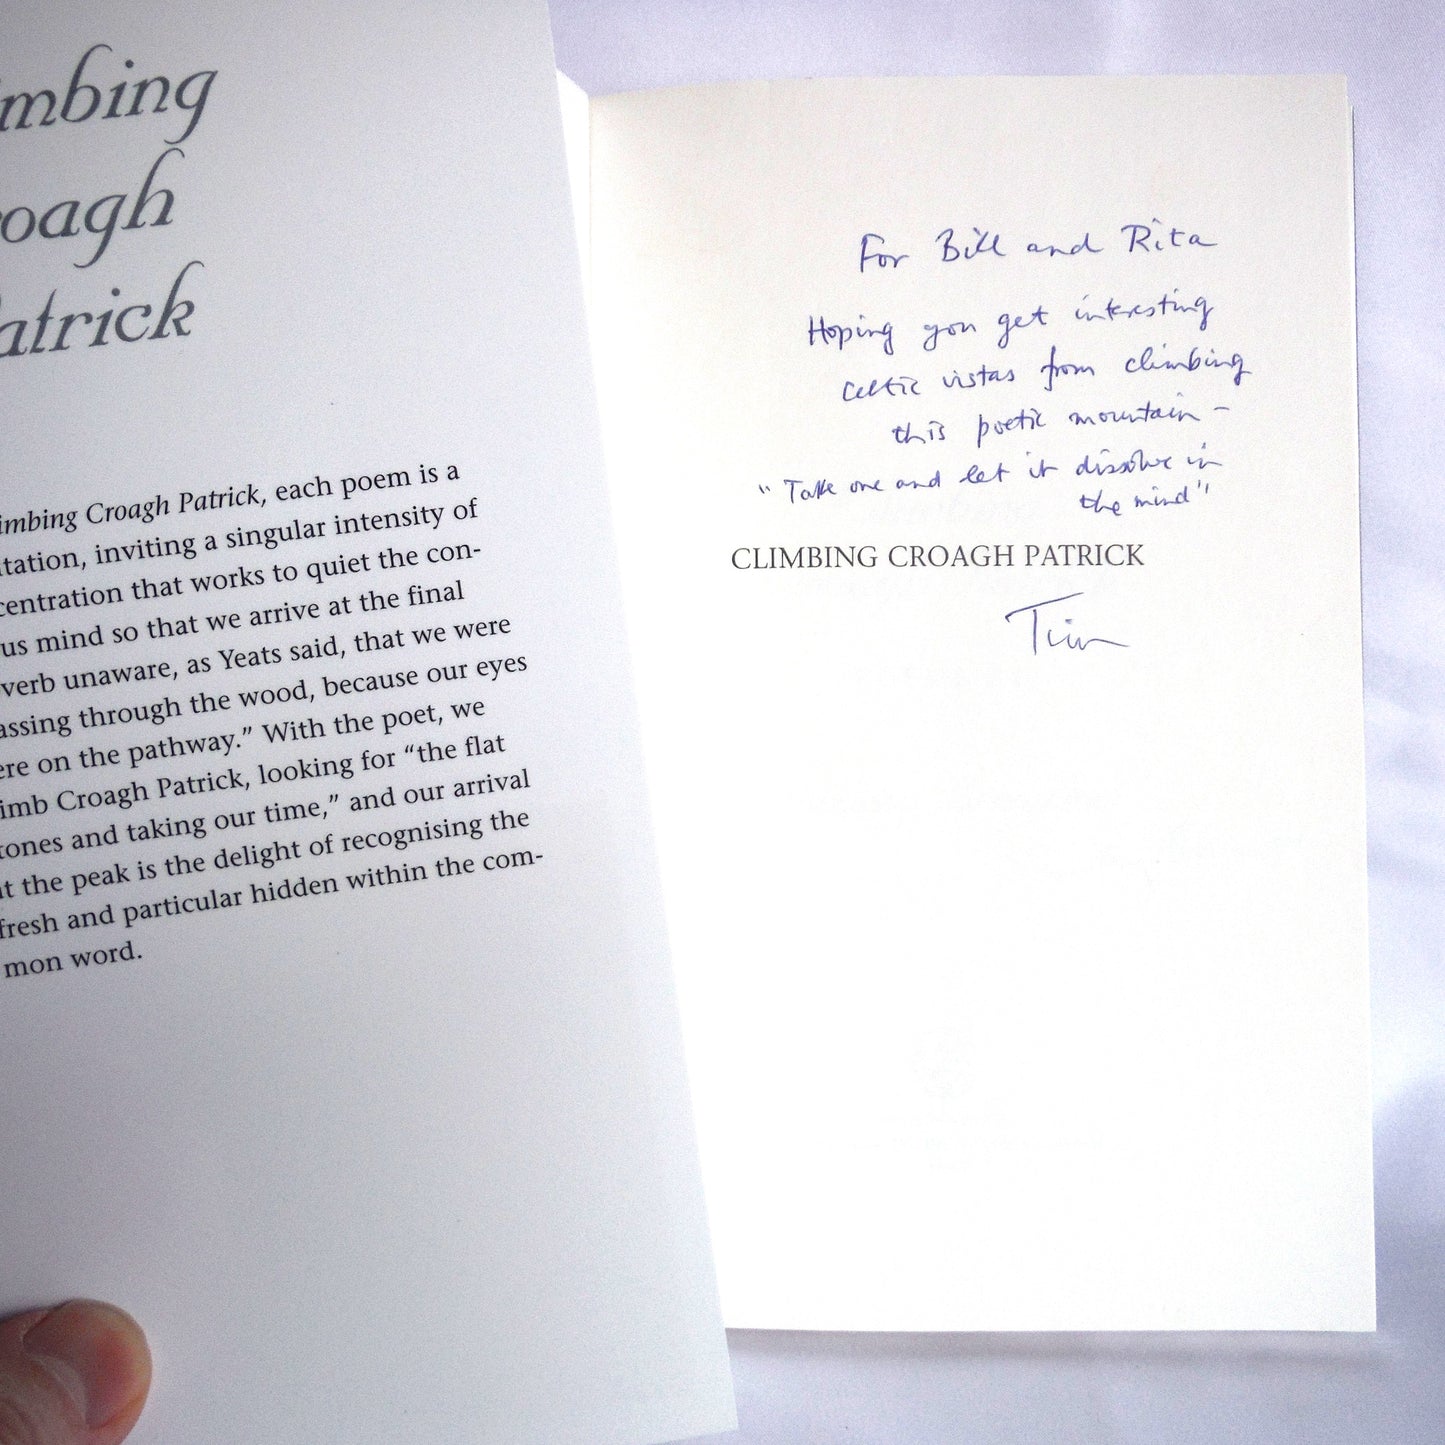 mbing
oagh
atrick
imbing Croagh Patrick, each poem is a
tation, inviting a singular intensity of
centration that works to quiet the con-
us mind so that we arrive at the final
verb unaware, as Yeats said, that we were
assing through the wood, because our eyes
ere on the pathway.” With the poet, we
imb Croagh Patrick, looking for “the flat
tones and taking our time,” and our arrival
t the peak is the delight of recognising the
fresh and particular hidden within the com-
mon word.
For Bill and Rita
Hoping you get interesting
Celtic vistas from climbing
this poetic mountain –
“Take one and let it dissolve in
the mind”
CLIMBING CROAGH PATRICK
Tim